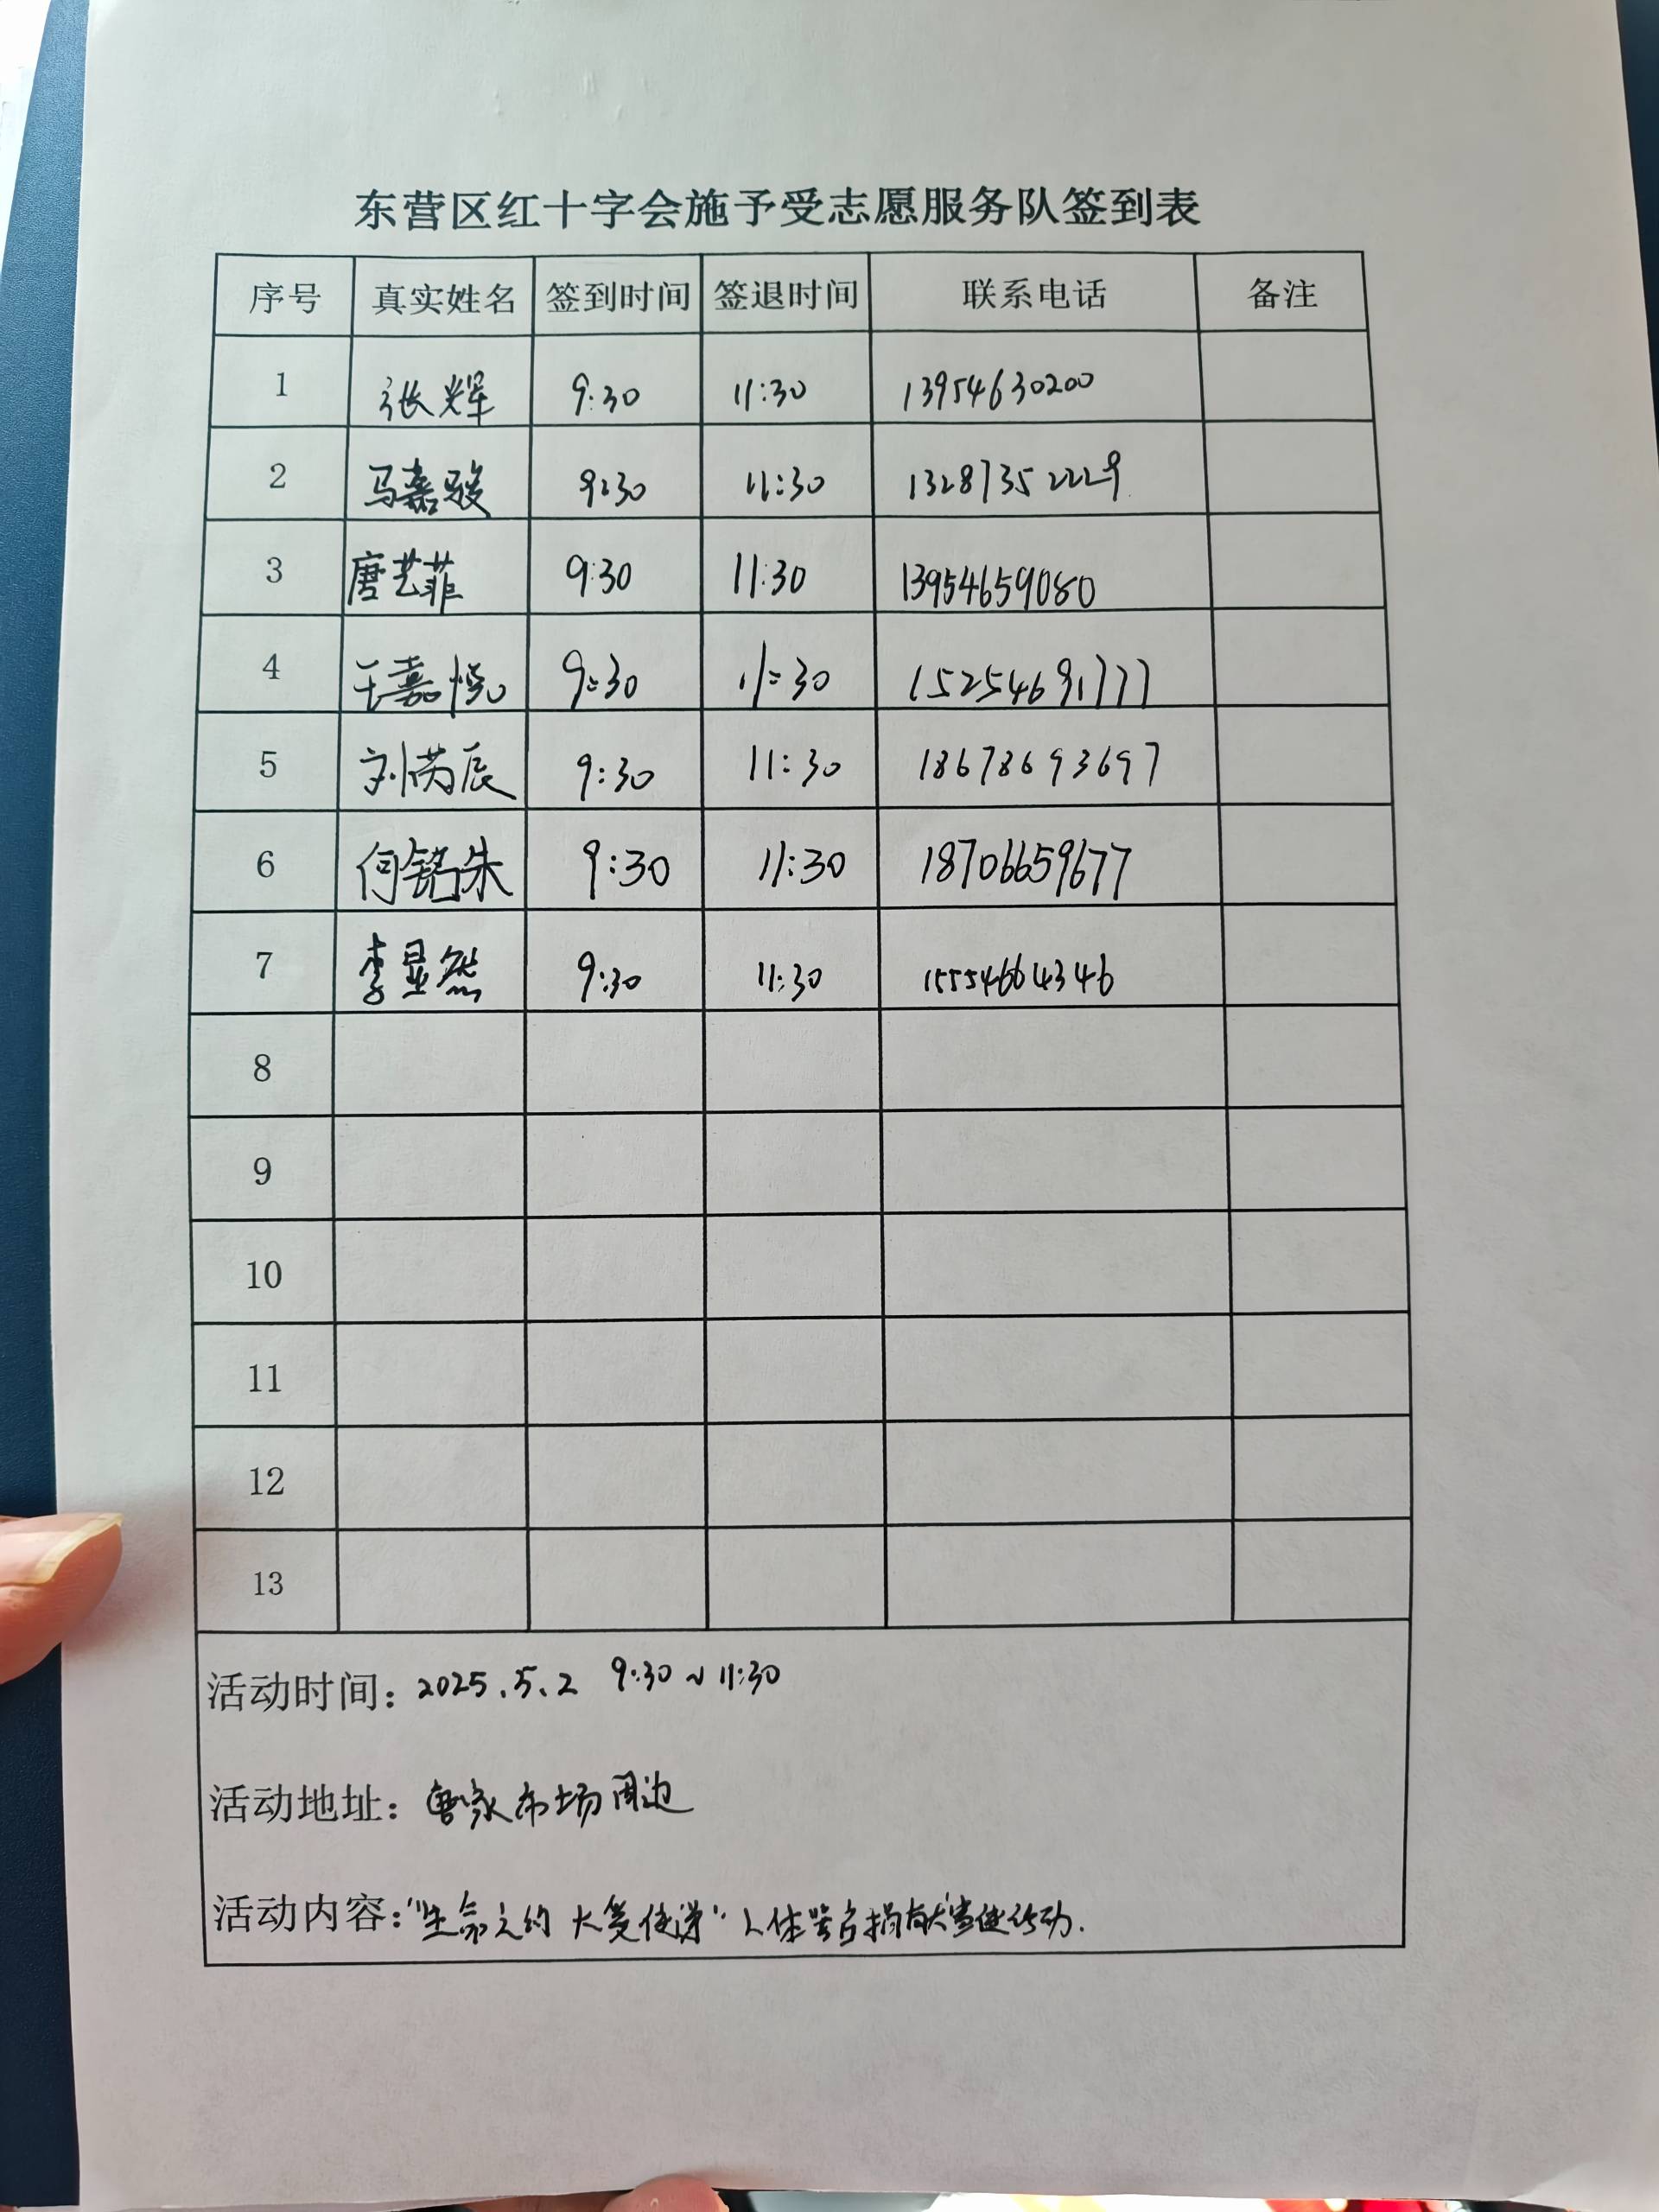 东营区红十字会施予受志愿服务队签到表
序号 真实姓名 签到时间 签退时间 联系电话 备注
1 张辉 9:30 11:30 13954630200
2 马嘉骏 9:30 11:30 13287352229
3 唐艺菲 9:30 11:30 13954659080
4 王嘉悦 9:30 11:30 15254691777
5 刘芮辰 9:30 11:30 18678693697
6 何铭朱 9:30 11:30 18706659677
7 李显然 9:30 11:30 15554664346
8
9
10
11
12
13
活动时间:2025.5.2 9:30~11:30
活动地址:曹家市场周边
活动内容:"生命之约 大爱传递"人体器官捐献宣传行动.